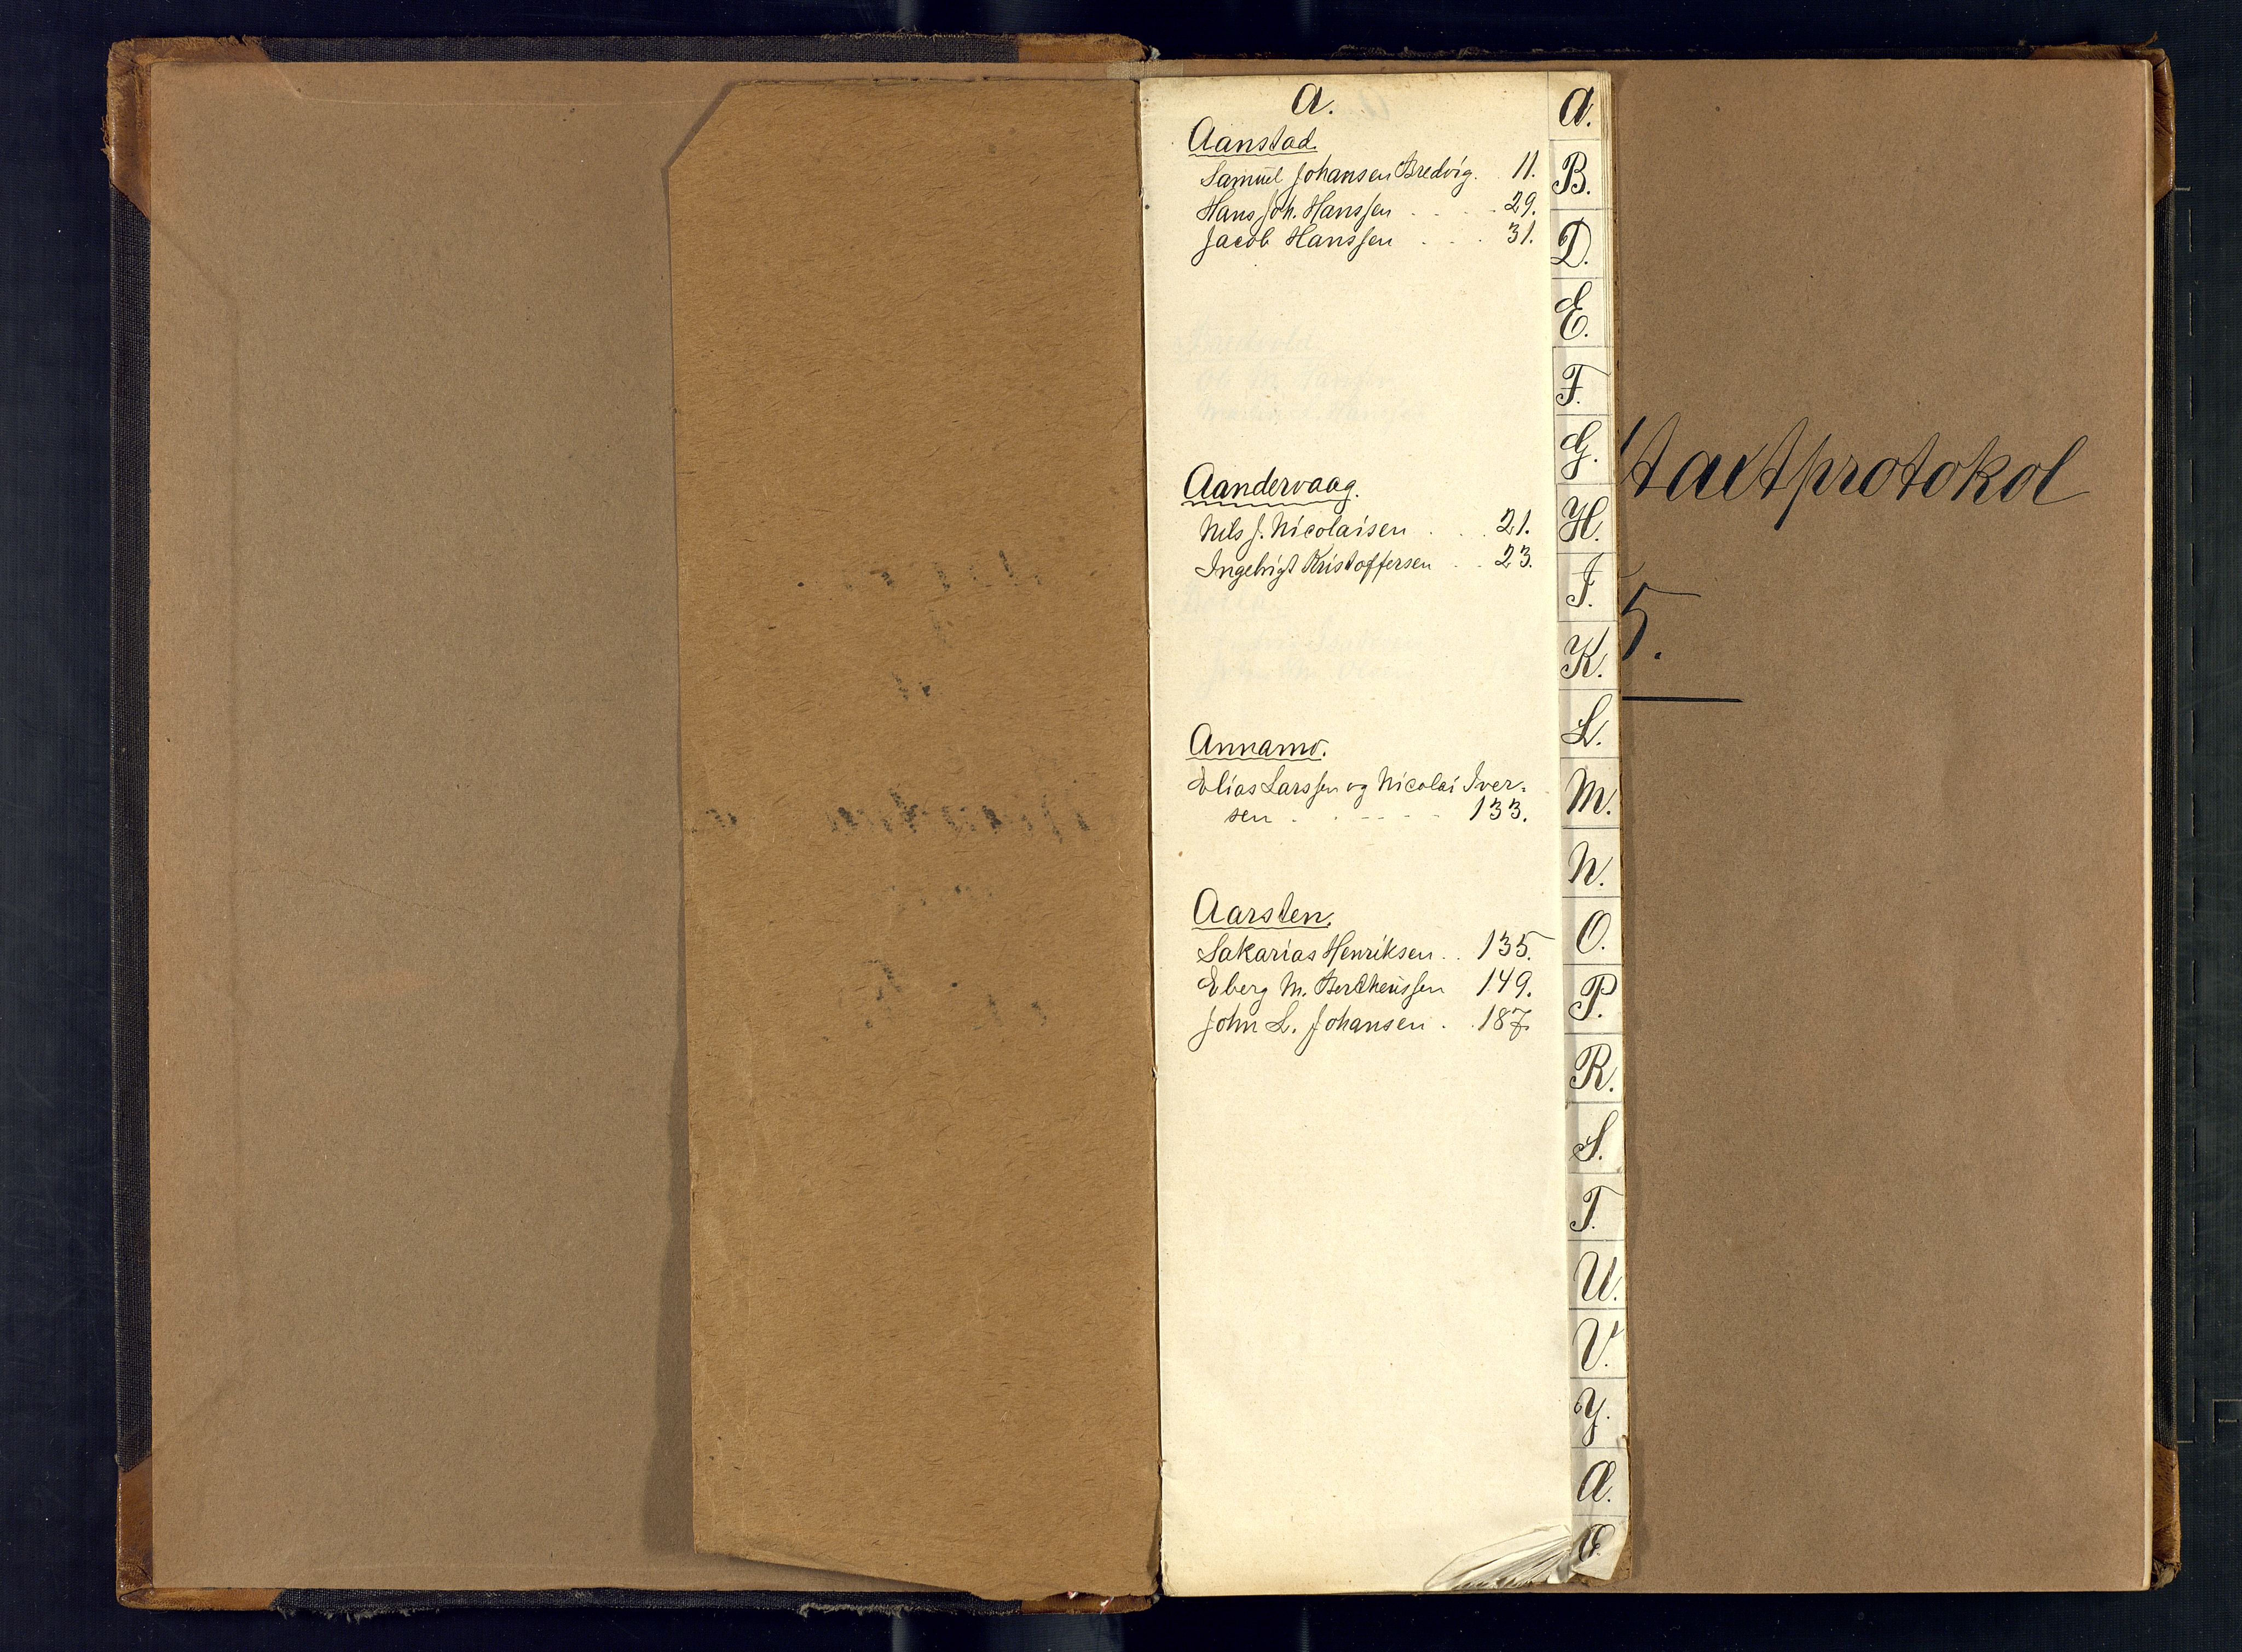 A.
Aanstad.
Samuel Johansen Bredvig. 11.
Hans Joh. Hanssen . . . . 29.
Jacob Hanssen . . . 31.
Aandervaag.
Nils J. Nicolaisen . . . 21.
Ingebrigt Kristoffersen . . 23.
Annamo.
Elias Larssen og Nicolai Iver-
sen . . - - - - 133.
Aarsten.
Sakarias Henriksen . . 135.
Eberg M. Bertheussen 149.
John L. Johansen . . 187.
A.
B.
D.
E.
F.
G.
H.
I.
K.
L.
M.
N.
O.
P.
R.
S.
T.
U.
V.
Y.
Ø.
taxtprotokol
5.